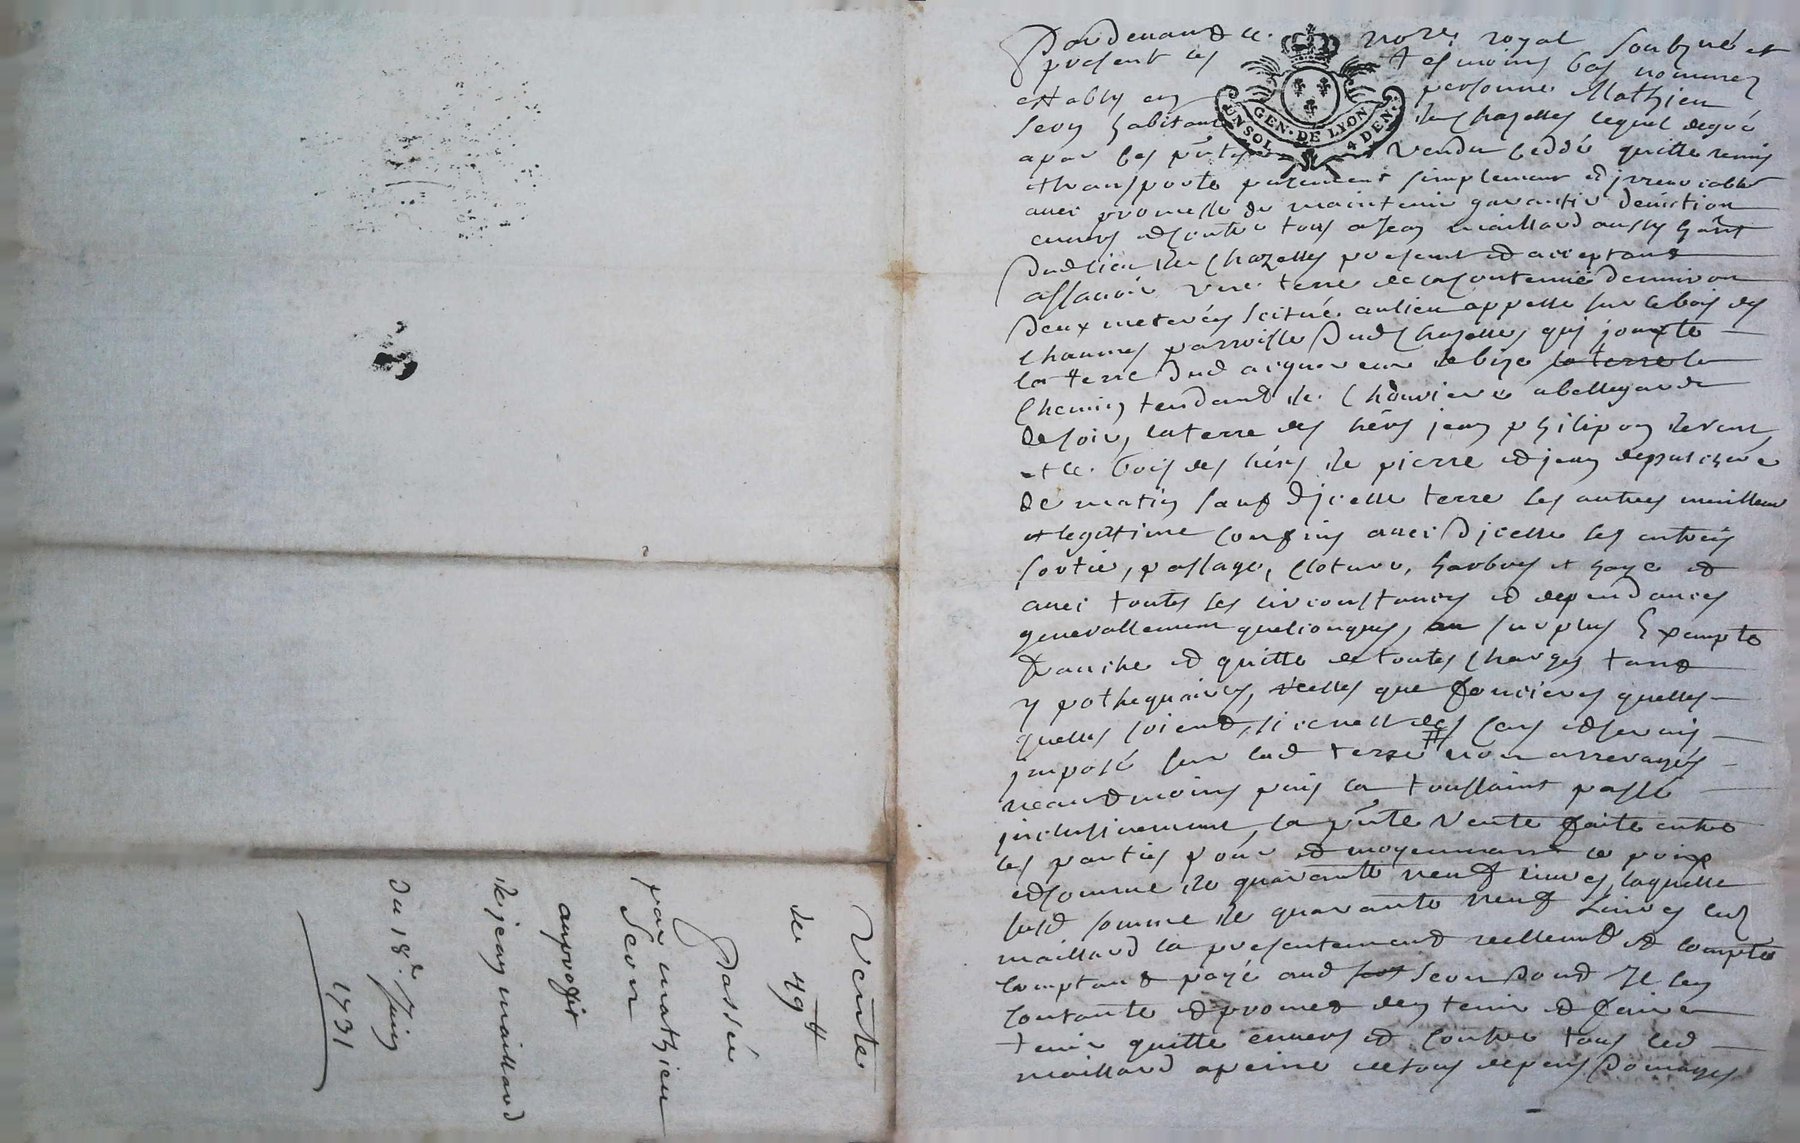 Pardevant le notre royal soubzné et
present les tesmoins bas nommez
estably en personne Mathieu
Seon habitant de Chazelles lequel de gré
a par les pntes vendu ceddé quitté remis
et transporté purement simplement et jrrevocablet
avec promesse de maintenir garantir deviction
envers et contre tous a Jean maillard aussy habnt
dud lieu de Chazelles present et acceptant
assavoir une terre de la contenue denviron
deux meterées scitué au lieu appellé sur le bois des
Chaumes parroisse dud Chazelles qui jouxte
la terre dud acquereur de bize la terre le
Chemin tendant de Chevrieres a bellegarde
de soir, la terre des hers jean philipon de vent,
et le bois des hers de pierre et jean
de matin sauf djcelle terre les autres meilleurs
et legitime confins avec djcelle ses entrées
sortie, passage, cloture, harbres et haye et
avec toutes ses circonstances et dependances
generallement quelconques, au surplus Exempte
franche et quitte de toutes charges tant
ypothequaires, réelles que foncieres quelles
quelles soient, si ce nest des cens et servis
jmposé sur lad terre non arreragés
neantmoins puis la toussaint passé
jnclusivement, la pnte vente faite entre
les parties pour et moyennant le prix
et somme de quarante neuf livres, laquelle
susd somme de quarante neuf Livres led
maillard la presentement reellemt et compte
comptant payé aud Seon dont Jl sen
contante et promet den tenir et faire
tenir quitte envers et contre tous led
maillard a peine de tous depens domages
Vente
de 49tt
Passée
par mathieu
Seon
au proffit
de jean maillard
Du 18e Juin
1731
GEN · DE LYON
UN SOL 4 DEN.